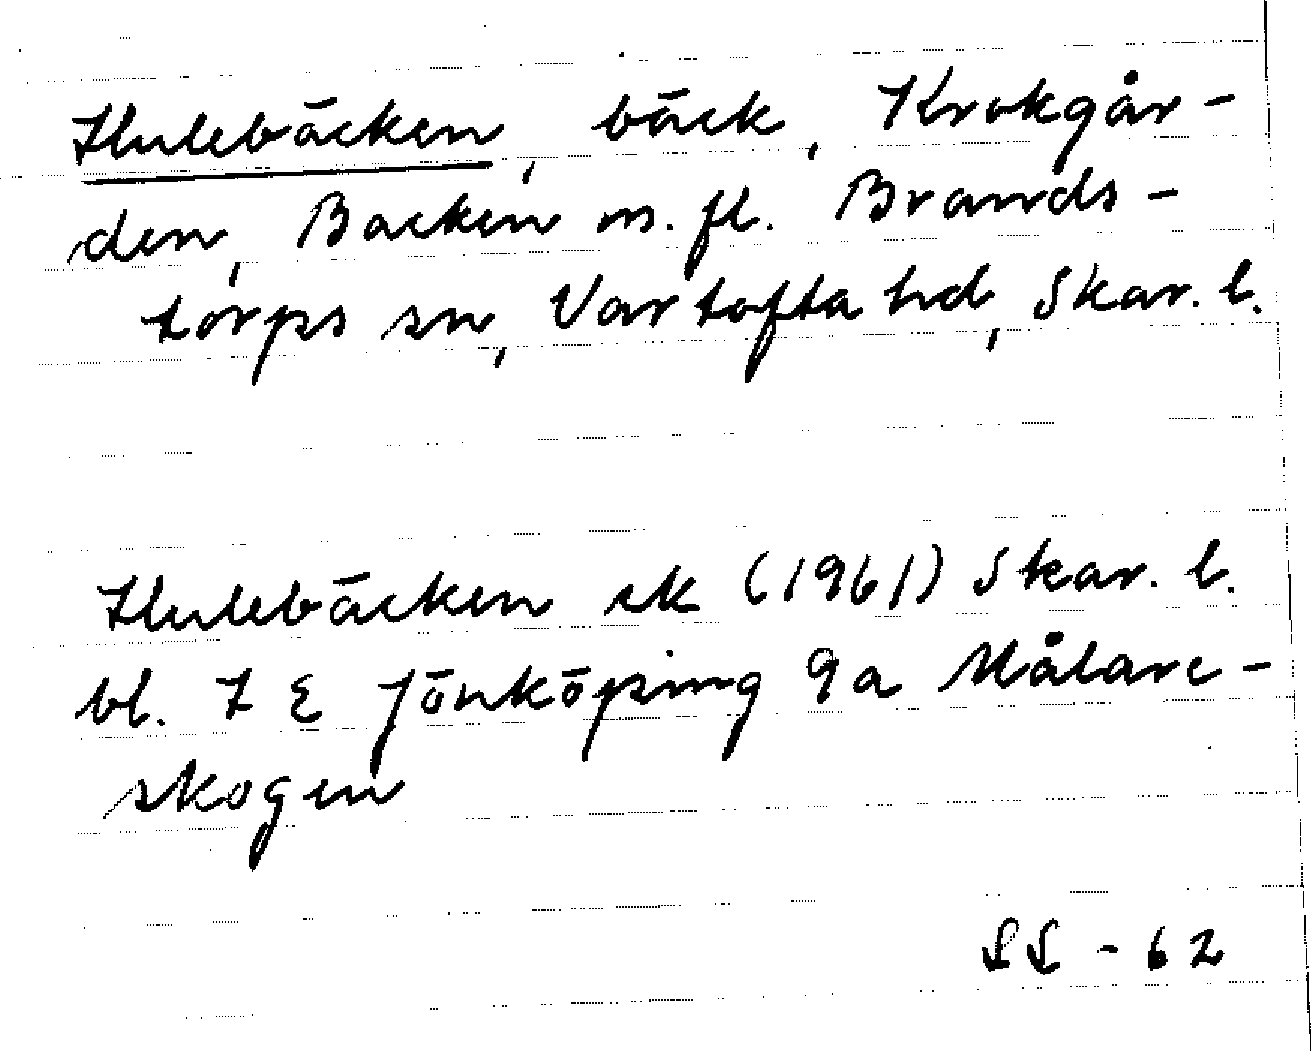 Hulebäcken, bäck, Krokgår-
den, Backen m. fl. Brands-
torps sn, Vartofta hd, Skar. l.
Hulebäcken ek (1961) Skar. l.
bl. 7 E Jönköping 9a Målare-
skogen
SS - 62